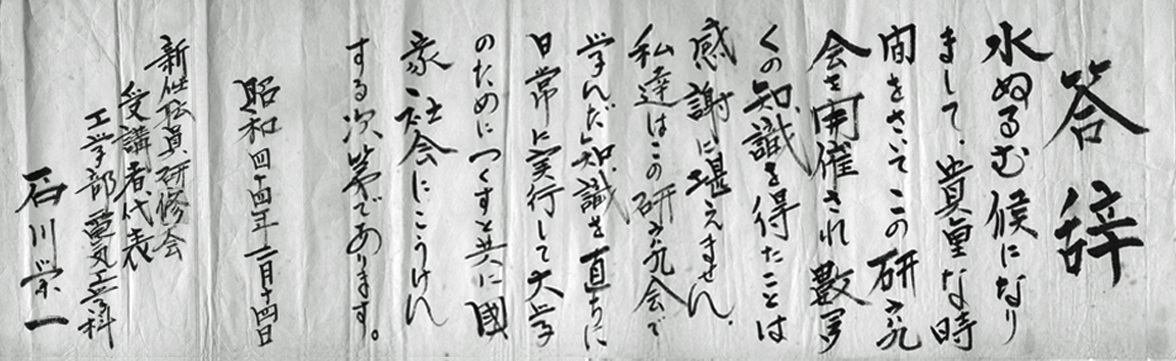 答辞
水ぬるむ候になり
まして、貴重な時
間をさいてこの研究
会を開催され数多
くの知識を得たことは
感謝に堪えません。
私達はこの研究会で
学んだ知識を直ちに
日常に実行して大学
のためにつくすと共に國
家、社会にこうけん
する次第であります。
昭和四十四年二月十四日
新任職員研修会
受講者代表
工学部電気工学科
石川栄一